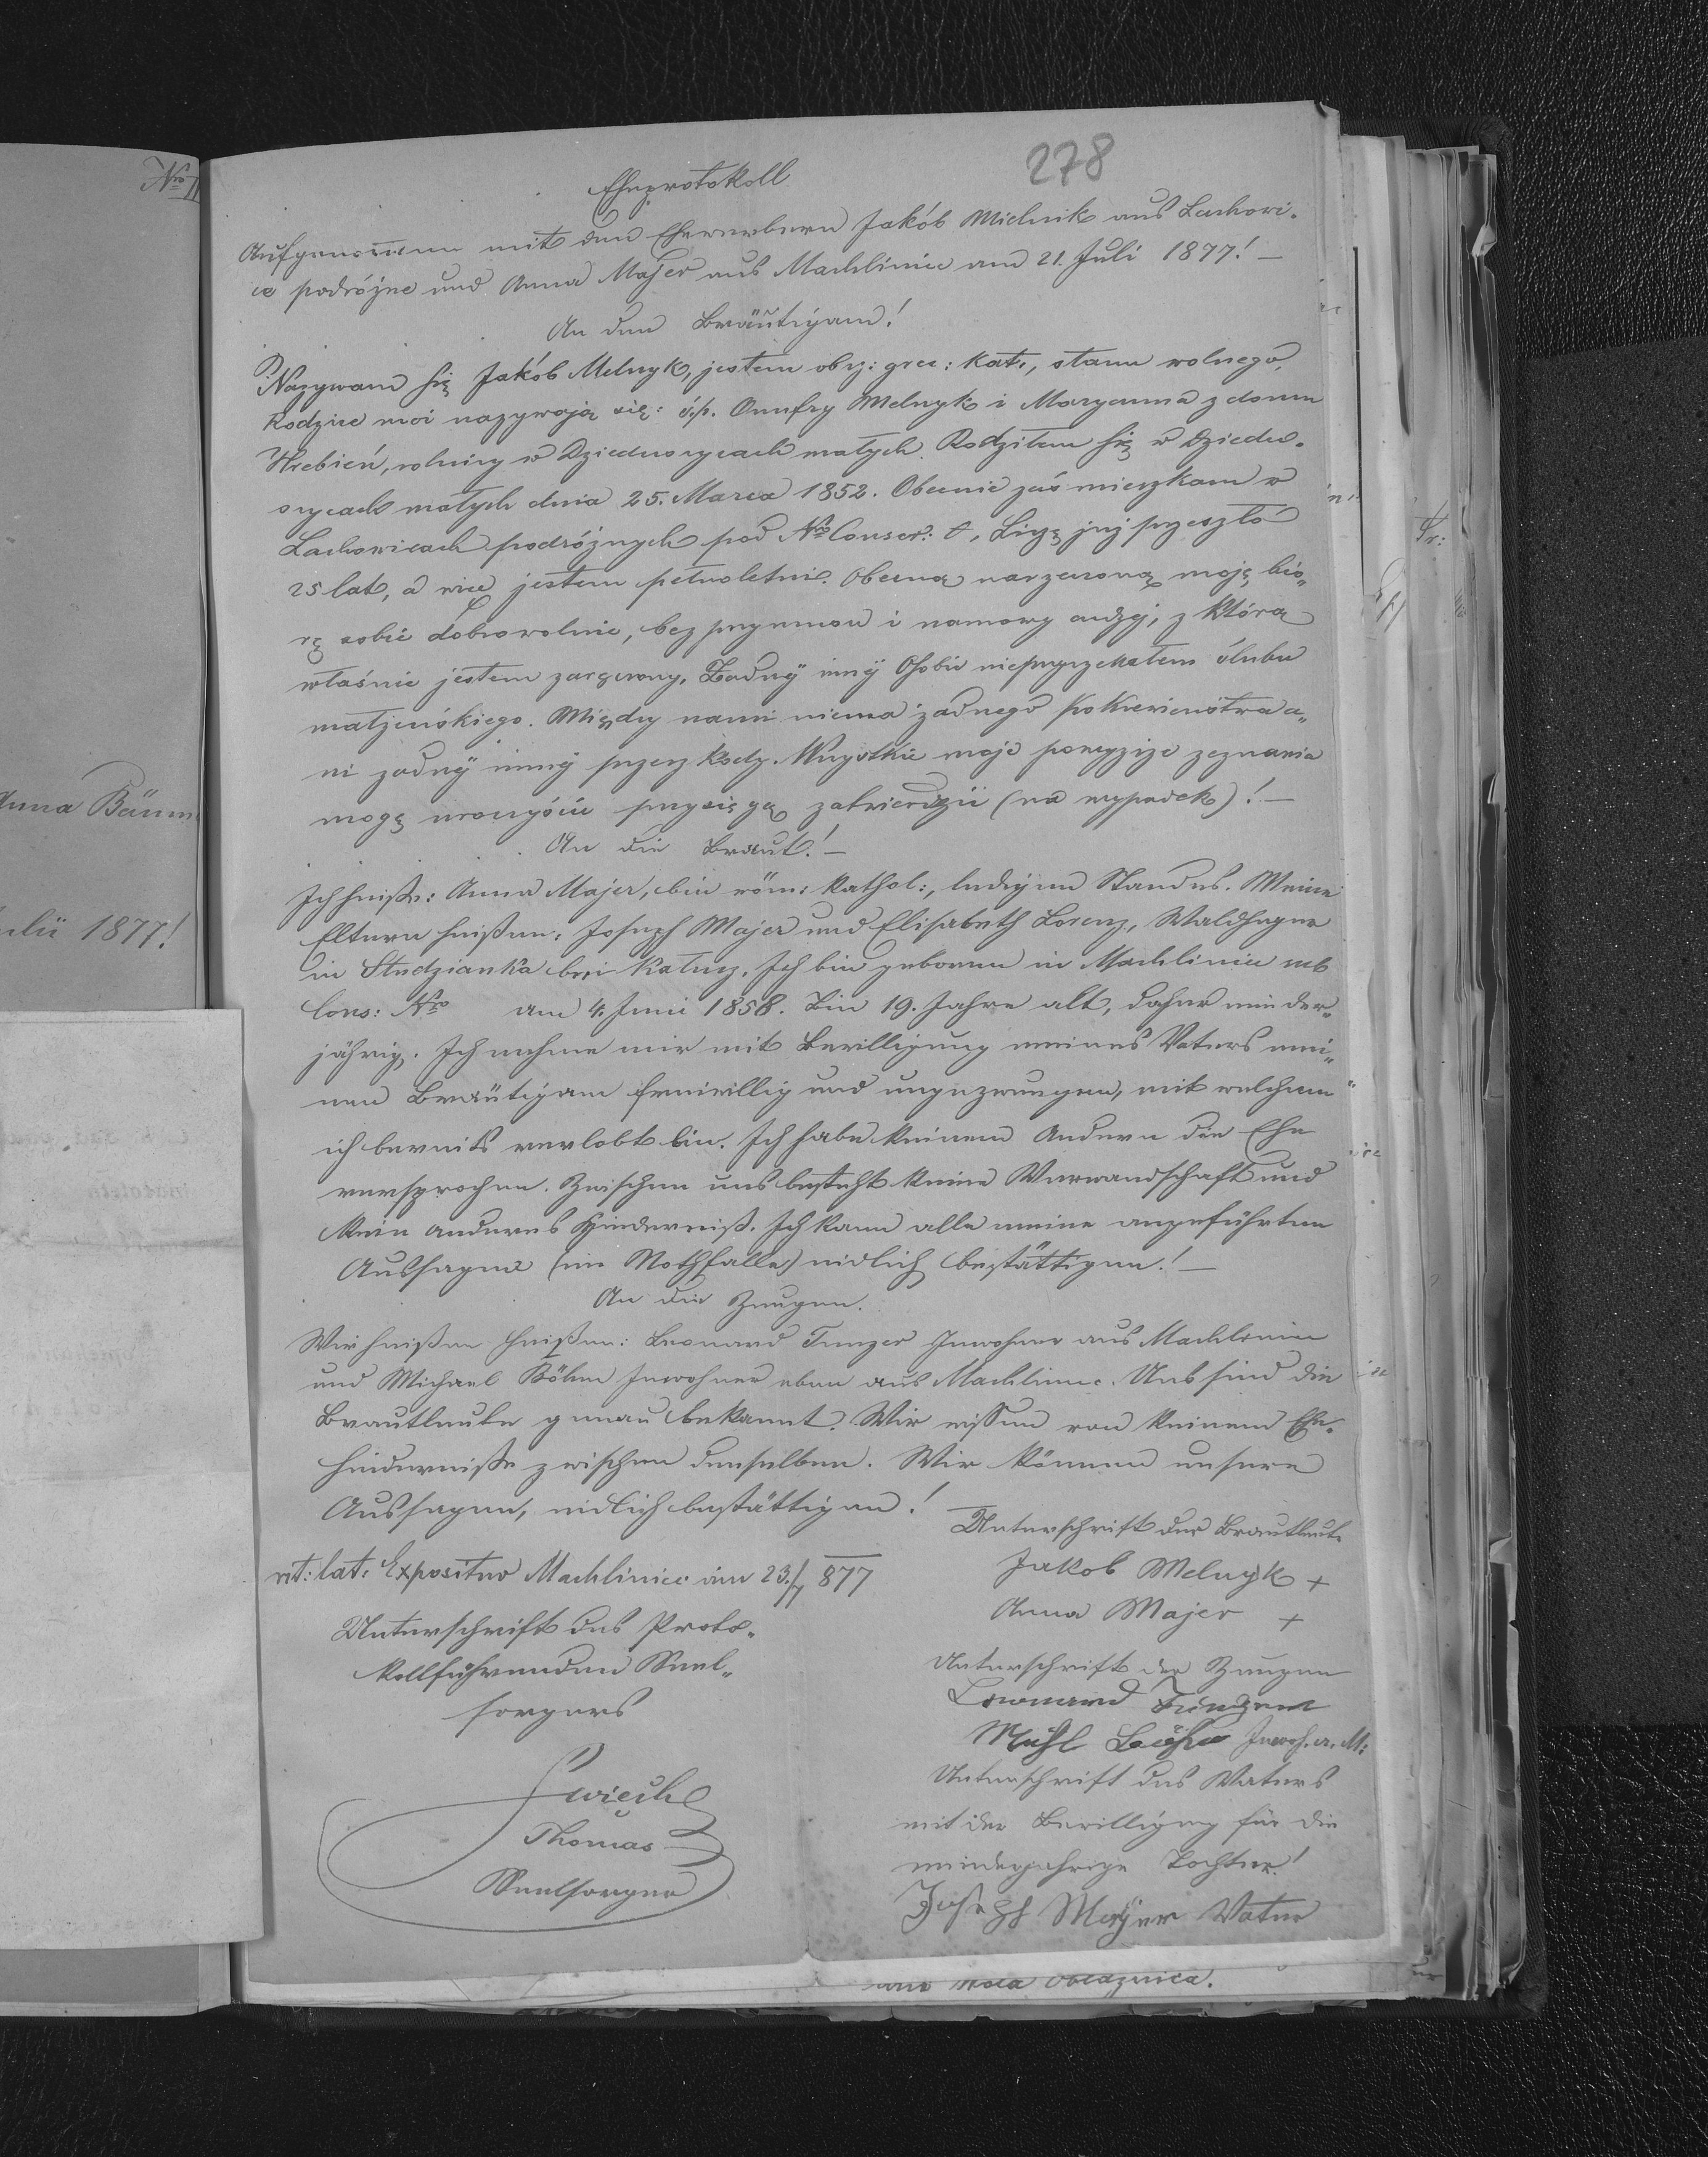 278
Eheprotokoll
Aufgenommen mit den Ehewerbern Jakób Mielnik aus Lachowi-
ce podróżne und Anna Majer aus Machlinie am 21. Juli 1877! —
An den Bräutigam!
Nazywam się Jakób Melnyk, jestem obrz: grec: kat:, stanu wolnego,
Rodzice moi nazywają się: ś.p. Onufry Melnyk i Maryanna z domu
Hrebień, rolnicy w Dzieduszycach małych. Rodziłem się w Dziedu-
szycach małych dnia 25. Marca 1852. Obecnie zaś mieszkam w
Lachowicach podróżnych pod Nro Conscr:  , Liczę już przeszło
25 lat, a więc jestem pełnoletni. Obecną narzeczoną moję bio„
rę sobie dobrowolnie, bez przymusu i namowy , z którą
właśnie jestem zaręczony. Żadnÿ innÿ Osobie nieprzyrzekałem ślubu
małżeńskiego. Między nami niema żadnego pokrewieństwa a„
ni żadnÿ innÿ przeszkody. Wszystkie moje powyższe zeznania
mogę uroczyście przysięgą zatwierdzić (na wypadek)! —
An die Braut! —
Ich heiße: Anna Majer, bin röm: kathol:, ledigen Standes. Meine
Eltern heißen: Joseph Majer und Elisabeth Lorenz, Waldheger
in Studzianka bei Kałusz. Ich bin geboren in Machliniec sub
Cons: Nro am 4. Juni 1858. Bin 19. Jahre alt, daher minder„
jährig. Ich nehme mir mit Bewilligung meines Vaters mei„
nen Bräutigam freiwillig und ungezwungen, mit welchem
ich bereits verlobt bin. Ich habe keinem Andern die Ehe
versprochen. Zwischen uns besteht keine Verwandschaft und
kein anderes Hinderniß. Ich kann alle meine angeführten
Aussagen (im Nothfalle) eidlich bestättigen! —
An die Zeugen.
Wir heißen heißen: Leonard Tunzer Inwohner aus Machliniec
und Michael Böhm Inwohner eben aus Machliniec. Uns sind die
Brautleute genau bekannt. Wir wissen von keinem Ehe-
hinderniße zwischen denselben. Wir können unsere
Aussagen, eidlich bestättigen!
Unterschrift der Brautleute
rit: lat: Expositur Machliniec am 23./7 877
Jakob Melnyk +
Anna Majer +
Unterschrift des Proto-
kollführenden Seel„
sorgers
Unterschrift der Zeugen
Leonard Tunzer
Michl Böhm Inwoh. a. M:
Unterschrift des Vaters
mit der Bewilligung für die
minderjahrige Tochter!
Joseph Mayer Vater
Swiech
Thomas
Seelsorger
Nro
Anna Bäum
Julii 1877!